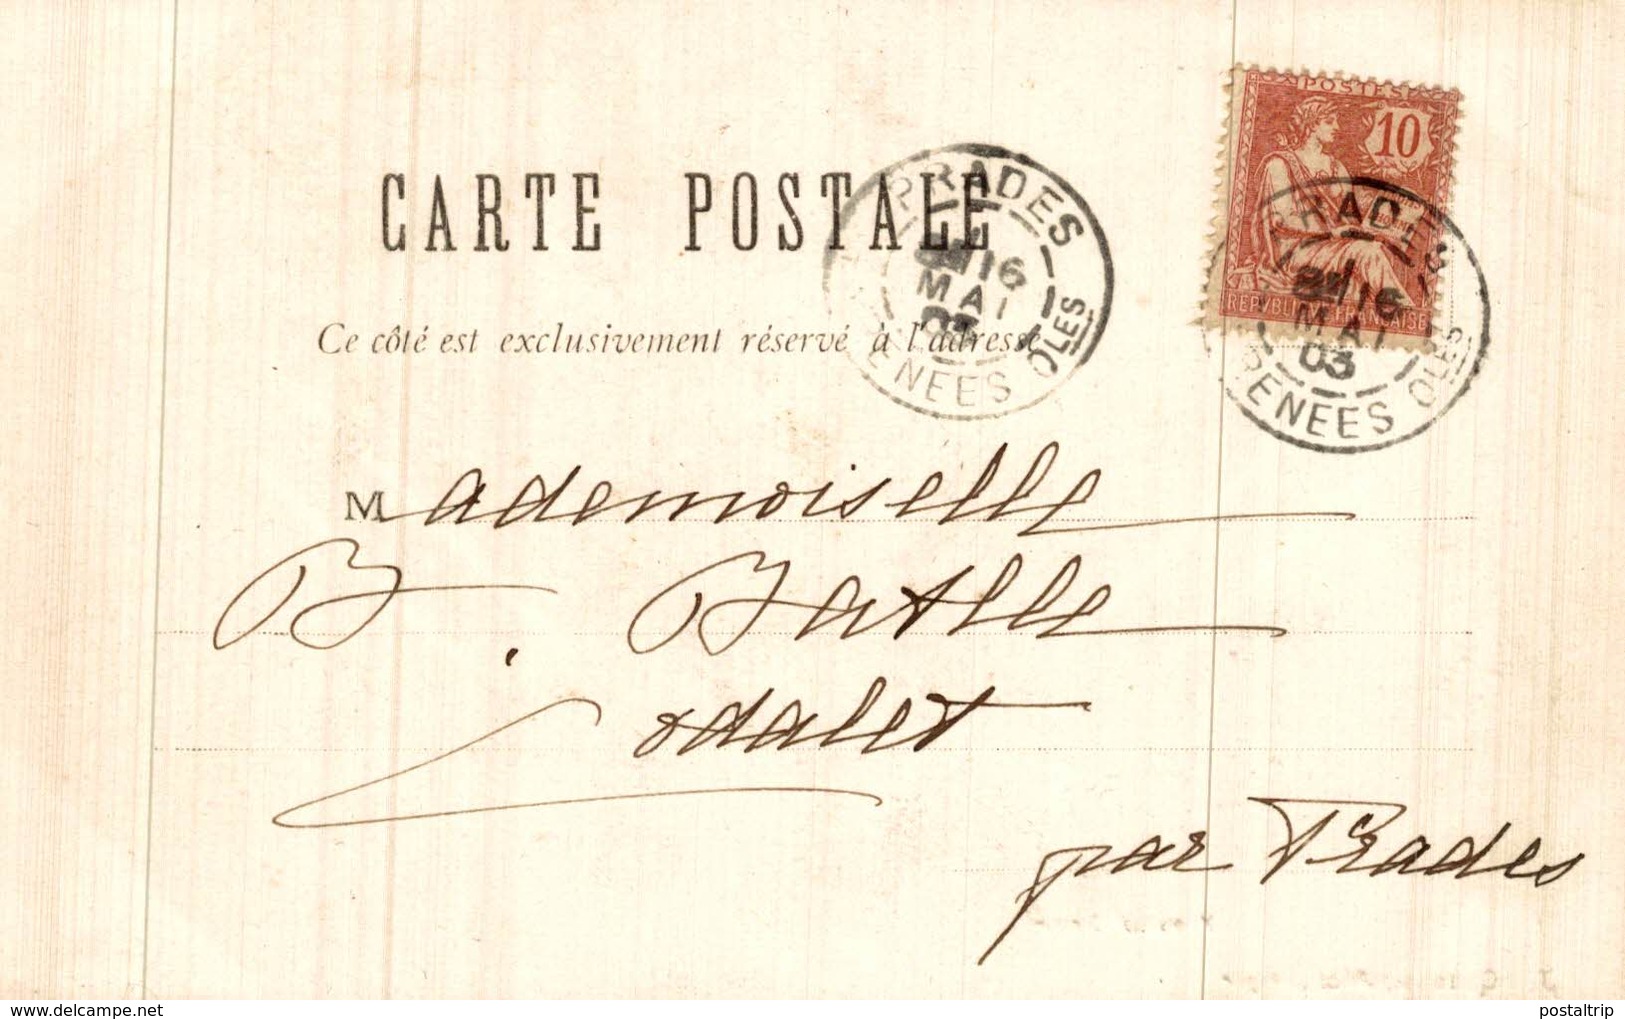 POSTES
10
REPVBLIQUE FRANÇAISE
PRADES
16
MAI
03
PYRENEES OLES
CARTE POSTALE
PRADES
16
MAI
03
PYRENEES OLES
Ce côté est exclusivement réservé à l'adresse
Mademoiselle
B. Batlle
Codalet
par Prades
delcampe.net
postaltrip